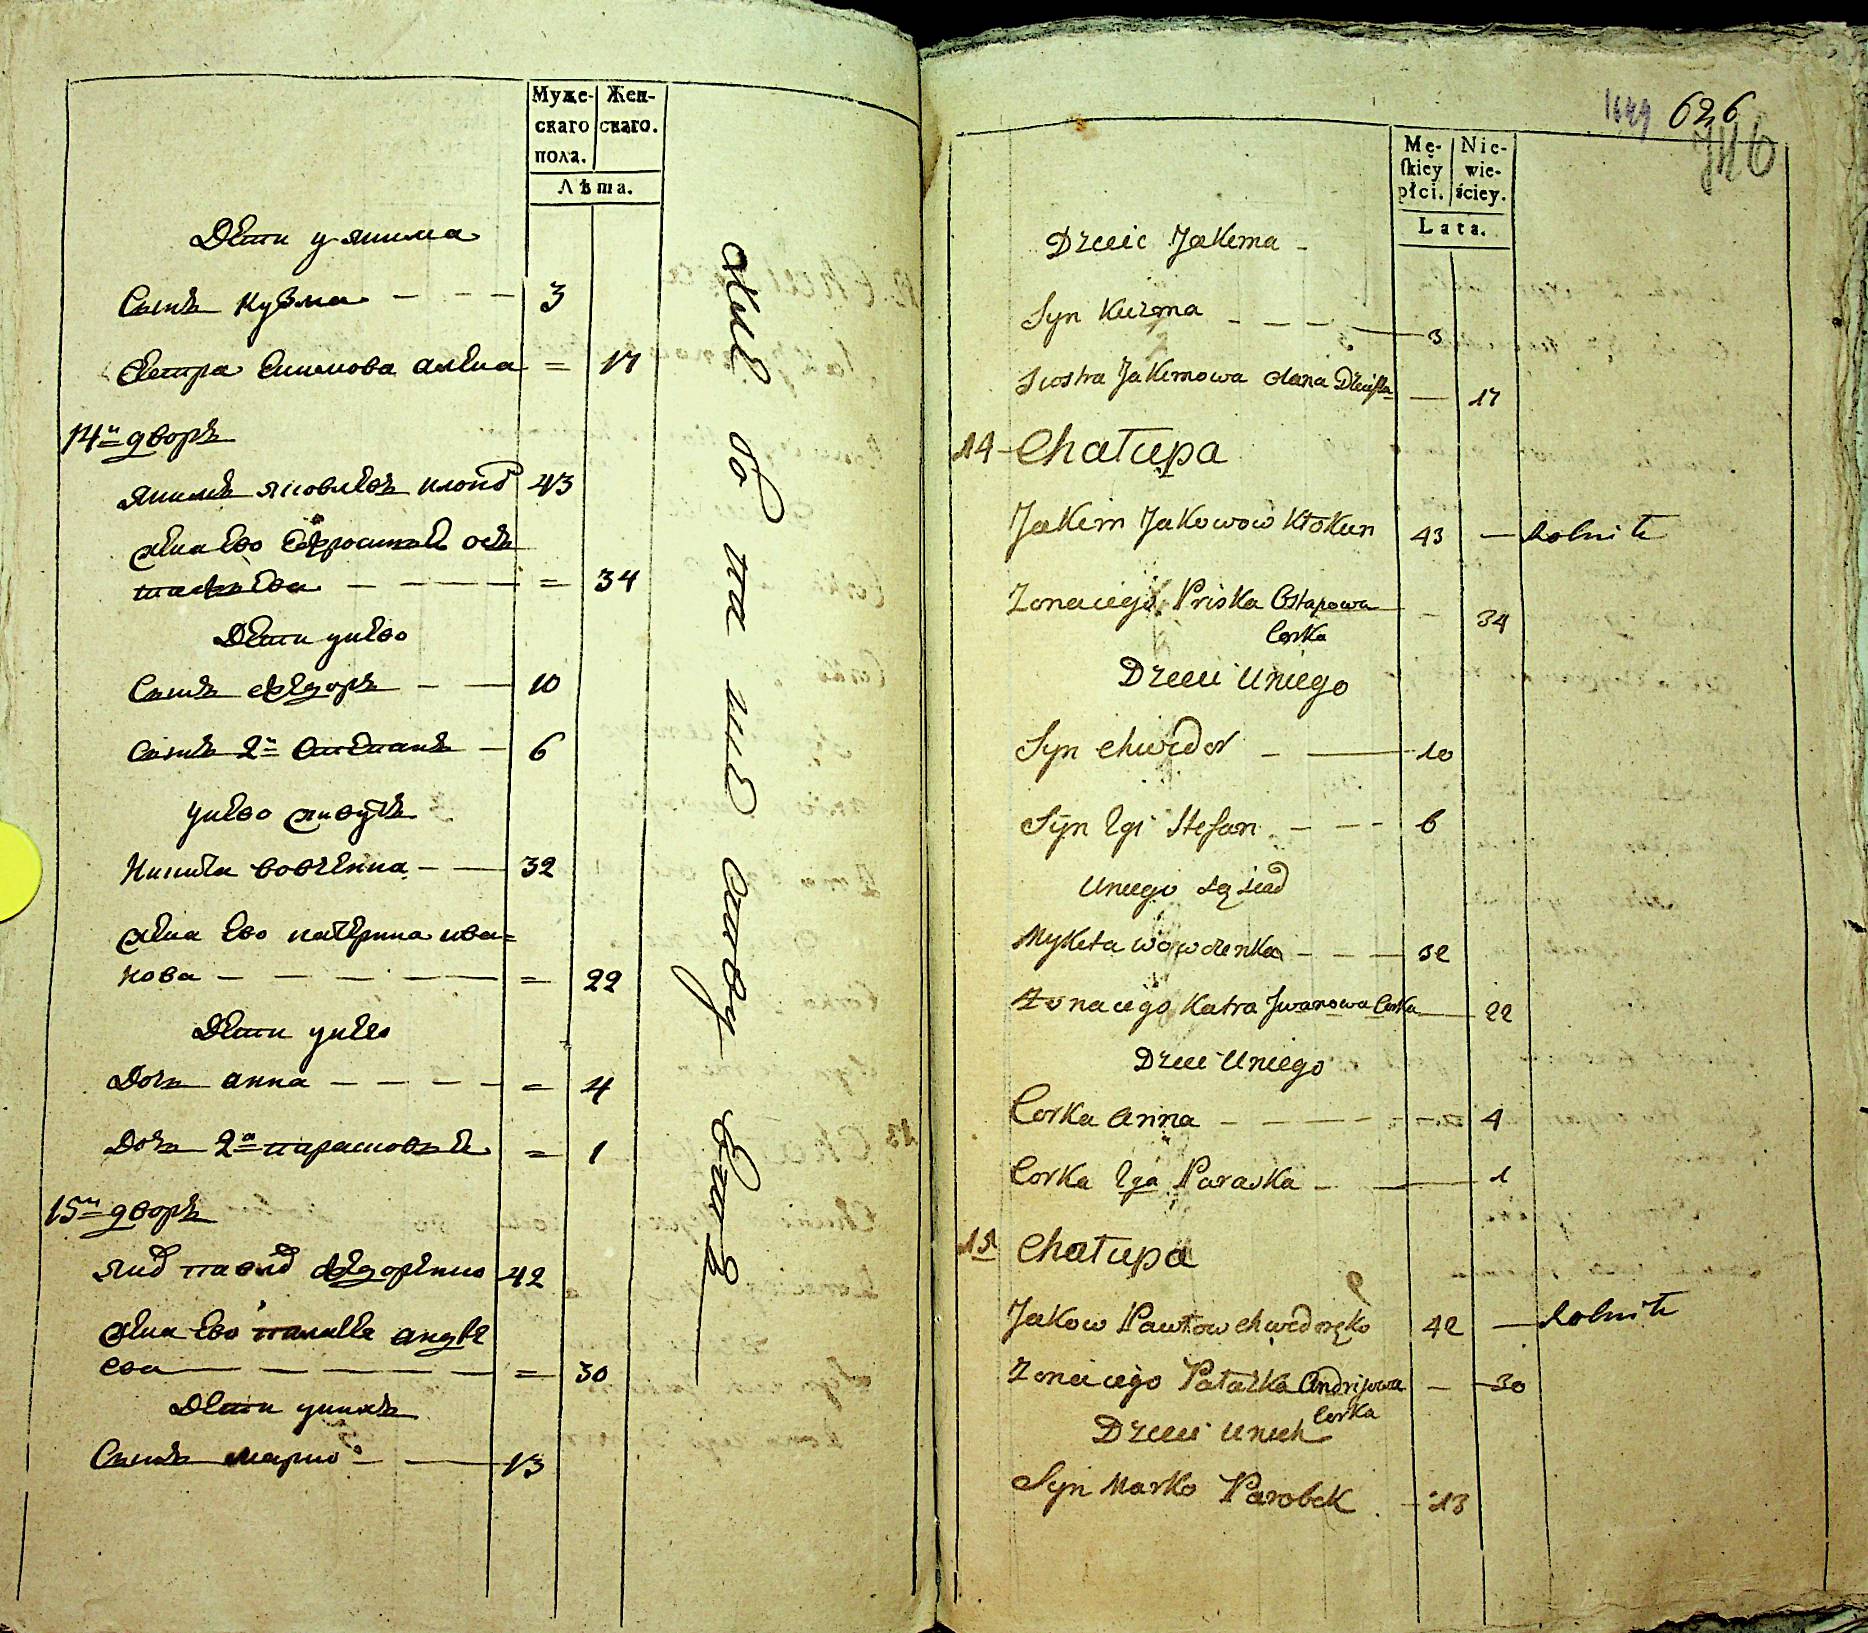 Муже- Жен-
скаго скаго.
пола.
Лѣта.
Дети у якима
Сынъ кузма - - - 3
Сестра якимова алена = 17
14й дворъ
якимъ яковлевъ клокỹ 43
жена ево Ефросиния оста
= 34
Дети унево
Сынъ федоръ - - 10
Сынъ 2й Степанъ - 6
унево живутъ
Никита вовченка - - 32
жена ево катерина ива=
нова - - - - = 22
Дети унево
Дочь анна - - - - = 4
Дочь 2я парасковья = 1
15й дворъ
яко павло федоренко 42
жена ево андре
ева = 30
Дети унихъ
Сынъ марко - 13
626
746
Mę- Nie-
skiey wie-
płci. ściey.
Lata.
Dzieic Jakema -
Syn Kuzma - - - 3
Siostra Jakimowa olena - 17
14 Chałupa
Jakim Jakowow Kłokun 43 - Rolnik
Zona iego Priska Ostapowa - 34
Corka
Dzieci Uniego
Syn Chwedor - 10
Syn 2gi Stefan - - - 6
Uniego Sąsiad
Mykita wowczenka - - - 32
Zona iego Katra Jwanowa Corka 22
Dzieci Uniego
Corka Anna - - - - 4
Corka 2ga Paraska - 1
15 Chałupa
Jakow Pawłow Chwedoręko 42 - Rolnik
Zona iego Pałażka Andrijowa - 30
Corka
Dzieci Unich
Syn Marko Parobek - 13